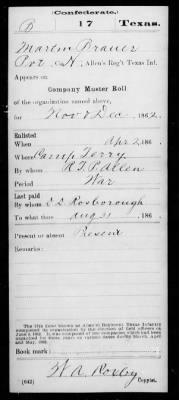 Confederate.
B 17 Texas.
Martin Brauer
Pvt, Co. H, Allen's Reg't Texas Inf.
Appears on
Company Muster Roll
of the organization named above,
for Nov & Dec, 1862.
Enlisted
When Apr 2, 186 .
Where Camp Terry
By whom R T P Allen
Period War
Last paid
By whom S. S. Rosborough
To what time Aug 31, 186 .
Present or absent Present
Remarks:
Book mark:
W. A. Roxby
(642) Copyist.